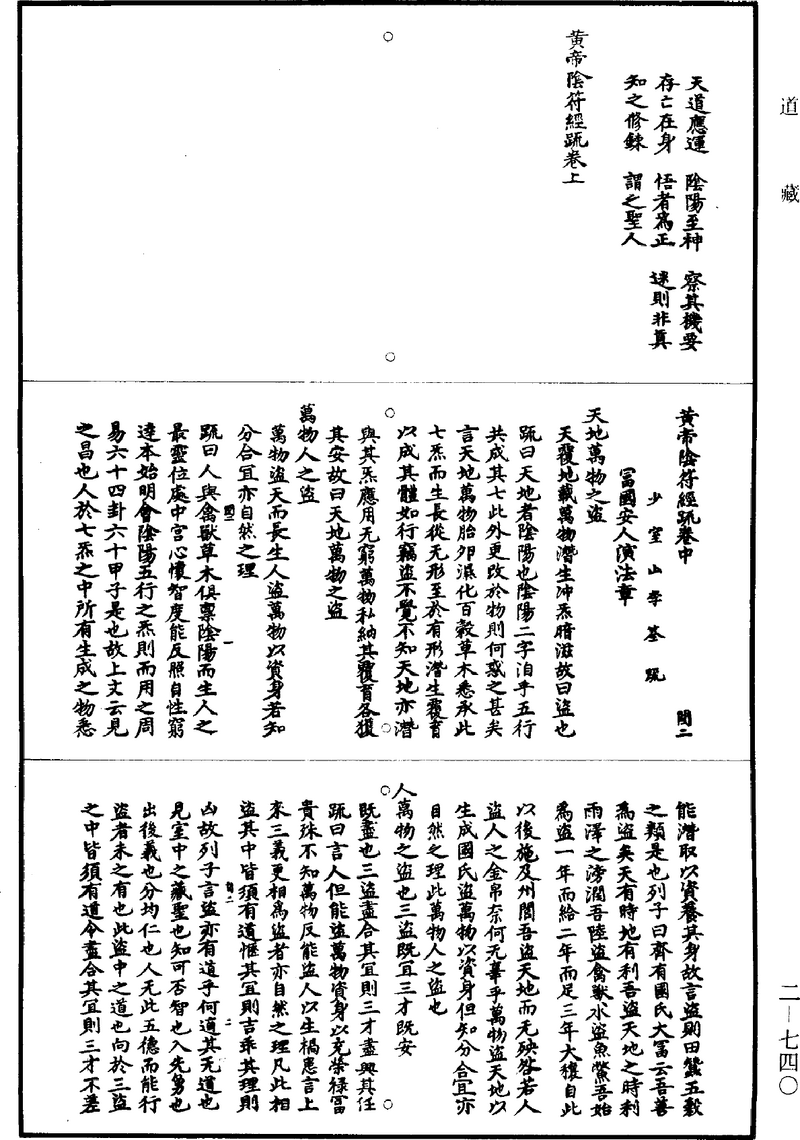 道藏
天道應運　陰陽至神　察其機要
存亡在身　悟者為正　迷則非真
知之修鍊　謂之聖人
黃帝陰符經疏卷上
黃帝陰符經疏卷中　閏二
少室山李荃疏
冨國安人演法章
天地萬物之盜
天覆地載萬物潛生冲炁暗滋故曰盜也
疏曰天地者陰陽也陰陽二字洎乎五行
共成其七此外更改於物則何惑之甚矣
言天地萬物胎卵濕化百穀草木悉承此
七炁而生長從无形至於有形潛生覆育
以成其體如行竊盜不覺不知天地亦潛
與其炁應用无窮萬物私納其覆育各獲
其安故曰天地萬物之盜
萬物人之盜
萬物盜天而長生人盜萬物以資身若知
分合宜亦自然之理
疏曰人與禽獸草木俱禀陰陽而生人之
最靈位處中宮心懷智度能反照自性窮
達本始明會陰陽五行之炁則而用之周
易六十四卦六十甲子是也故上文云見
之昌也人於七炁之中所有生成之物悉
能潛取以資養其身故言盜則田蠶五穀
之類是也列子曰齊有國氏大冨云吾善
為盜矣天有時地有利吾盜天地之時利
雨澤之滂潤吾陸盜禽獸水盜魚鱉吾始
為盜一年而給二年而足三年大穰自此
以後施及州閭吾盜天地而无殃咎若人
盜人之金帛奈何无辜乎萬物盜天地以
生成國氏盜萬物以資身但知分合宜亦
自然之理此萬物人之盜也
人萬物之盜也三盜既宜三才既安
既盡也三盜盡合其宜則三才盡興其任
疏曰言人但能盜萬物資身以充榮祿冨
貴殊不知萬物反能盜人以生禍患言上
來三義更相為盜者亦自然之理凡此相
盜其中皆須有道愜其宜則吉乖其理則
凶故列子言盜亦有道乎何適其无道也
見室中之藏聖也知可否智也入先勇也
出後義也分均仁也人无此五德而能行
盜者未之有也此盜中之道也向於三盜
之中皆須有道令盡合其宜則三才不差
二—七四〇